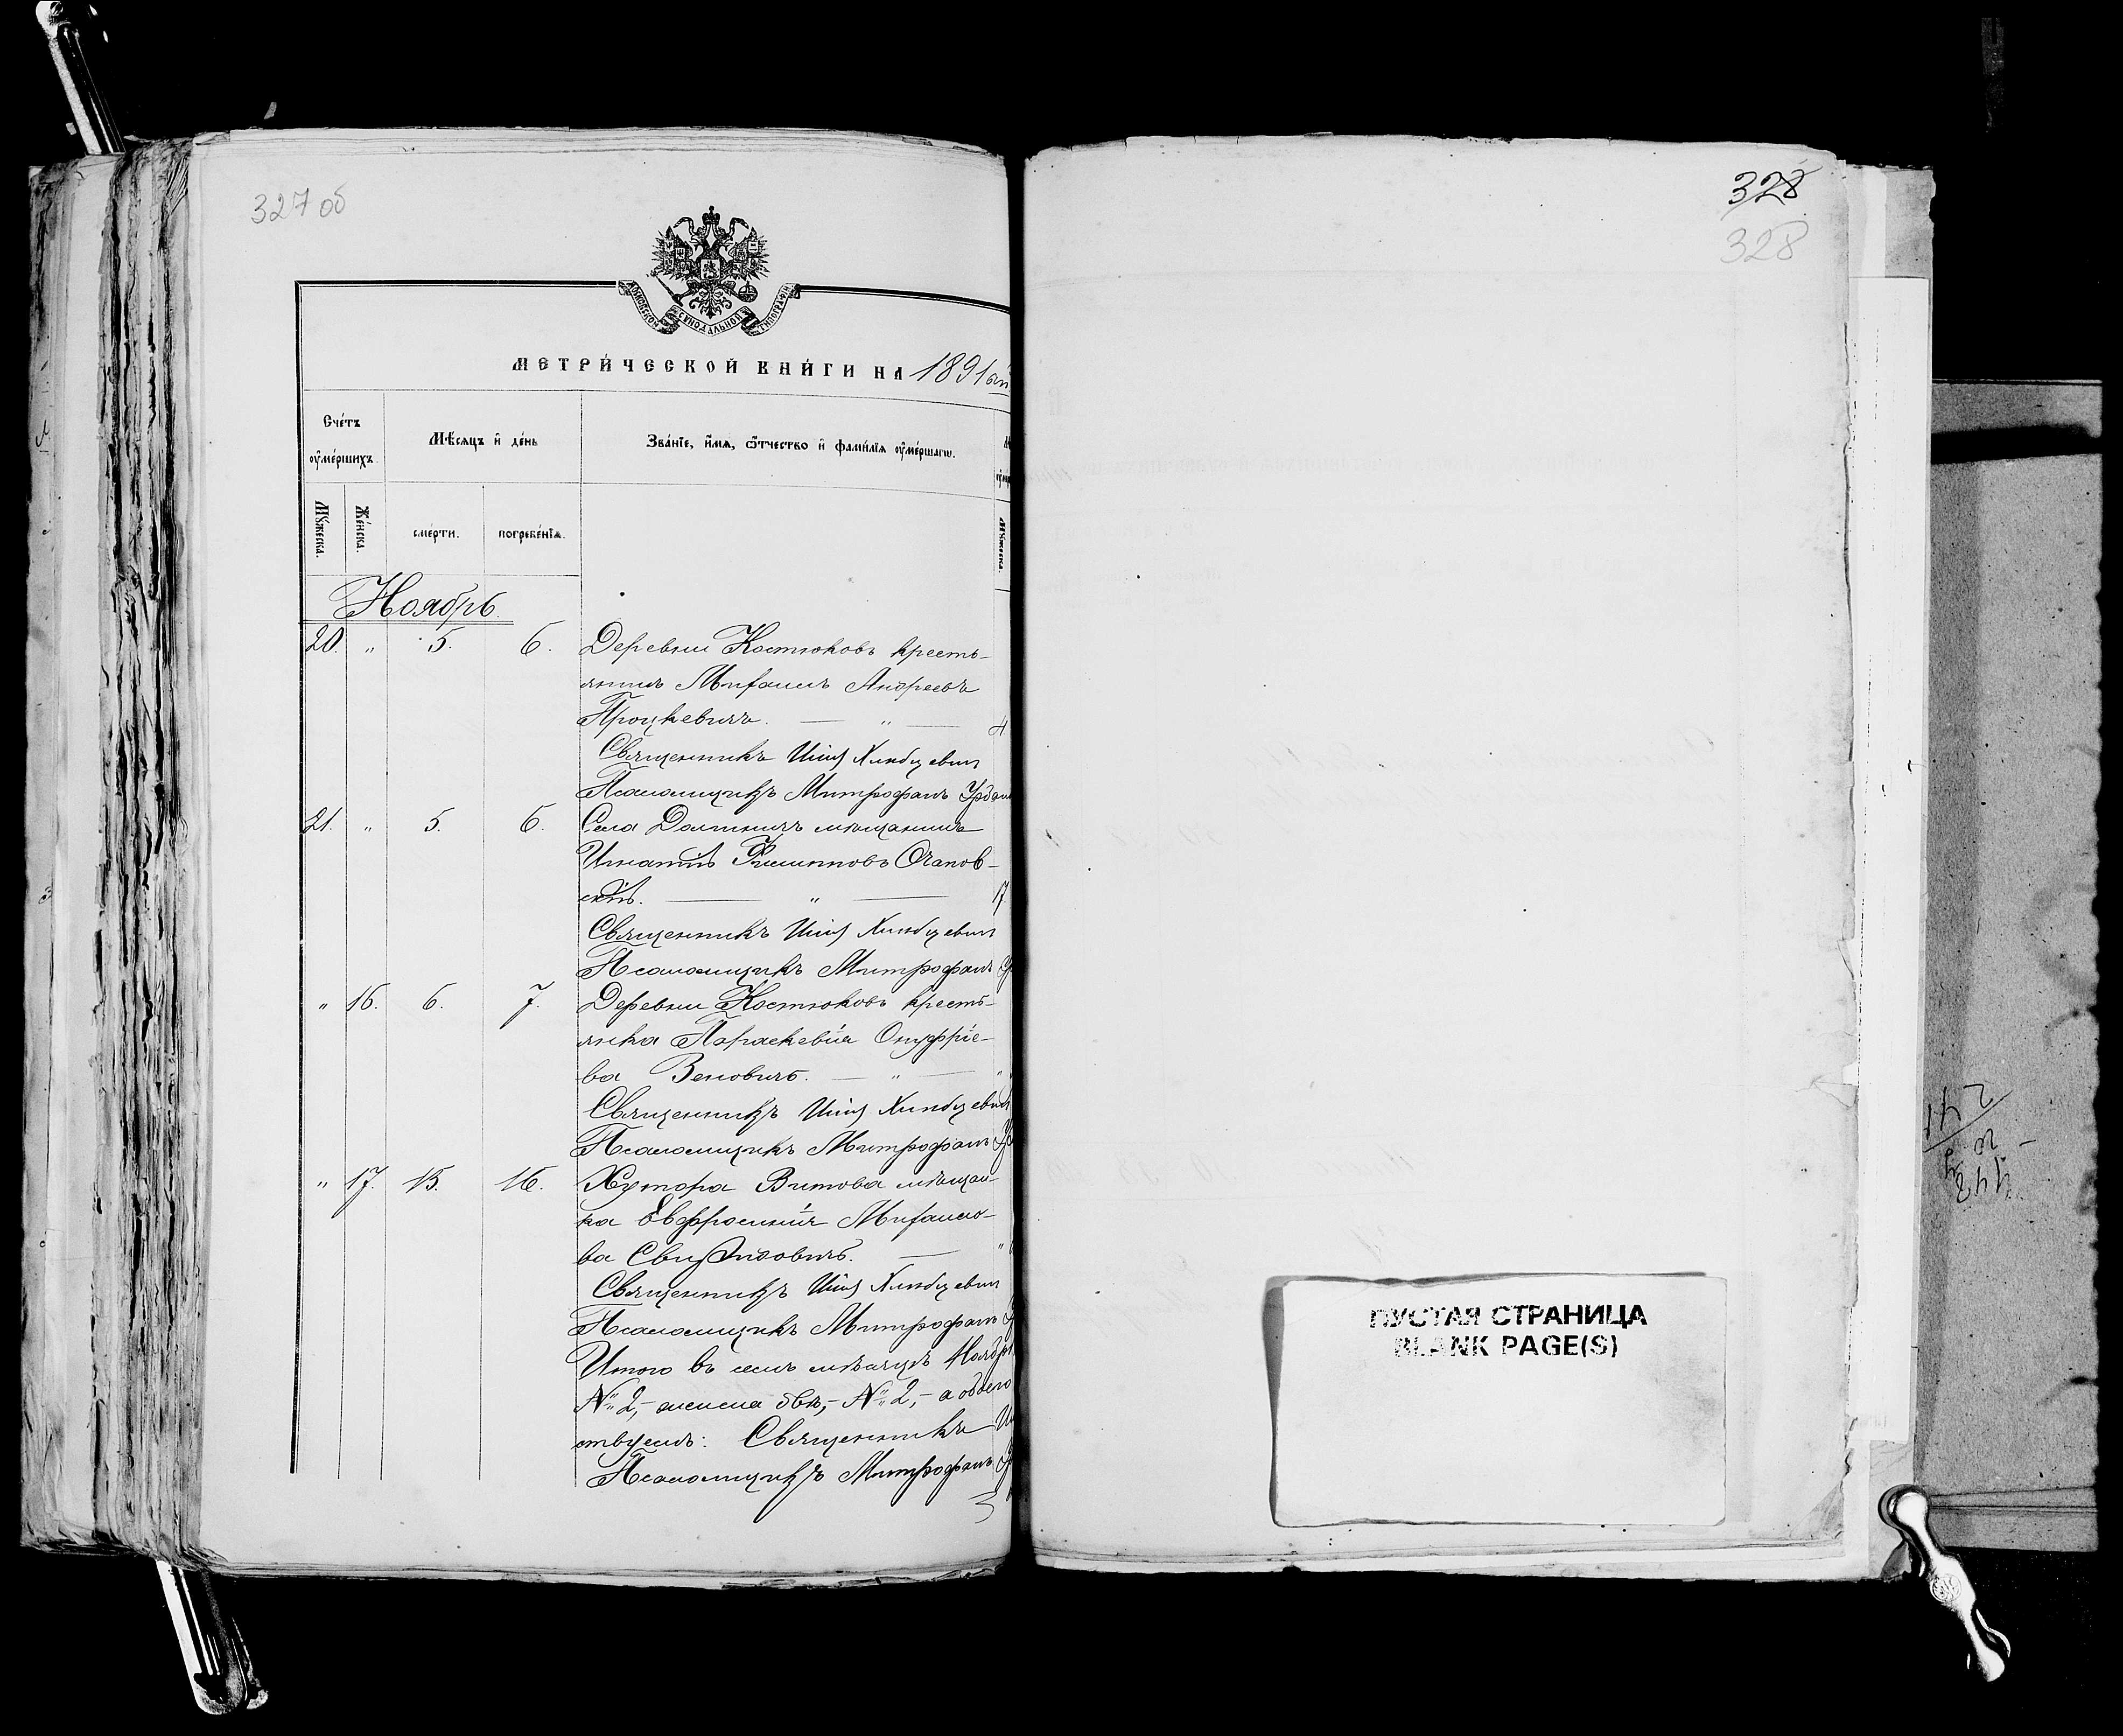 327 об
МОСКОВСКОЙ СѴНОДАЛЬНОЙ ТИПОГРАФІИ
МЕТРИ́ЧЕСКОЙ КНИ́ГИ НА 1891ый
Сче́тъ ᲂу҆ме́ршихъ.
Мѣ́сяцъ и҆ де́нь
Зва́нїе, и҆́мѧ, ѻ҆́тчество и҆ фами́лїѧ ᲂу҆ме́ршагѡ.
Мꙋ́жеска.
Же́нска.
сме́рти.
погребе́нїѧ.
Мꙋ́жеска.
Ноябрь.
20. " 5. 6. Деревни Костюковъ кресть-
янинъ Михаилъ Андреевъ
Процкевичъ. — " — 4
Священникъ
Псаломщикъ Митрофанъ
21. " 5. 6. Села мѣщанинъ
Игнатій Филипповъ Очапов-
скій. — " — 17
Священникъ
Псаломщикъ Митрофанъ
" 16. 6. 7. Деревни Костюковъ кресть-
янка Параскевія Онуфріе-
ва Зеновичъ. — " — "
Священникъ
Псаломщикъ Митрофанъ
" 17. 15. 16. Хутора Витова мѣщан-
ка Евфросинія Михаило-
ва — "
Священникъ
Псаломщикъ Митрофанъ
Итого въ семъ мѣсяцѣ Ноябрѣ
№ 2,- женска № 2,- а обоего
Священникъ
Псаломщикъ Митрофанъ
328
328
ПУСТАЯ СТРАНИЦА
BLANK PAGE(S)